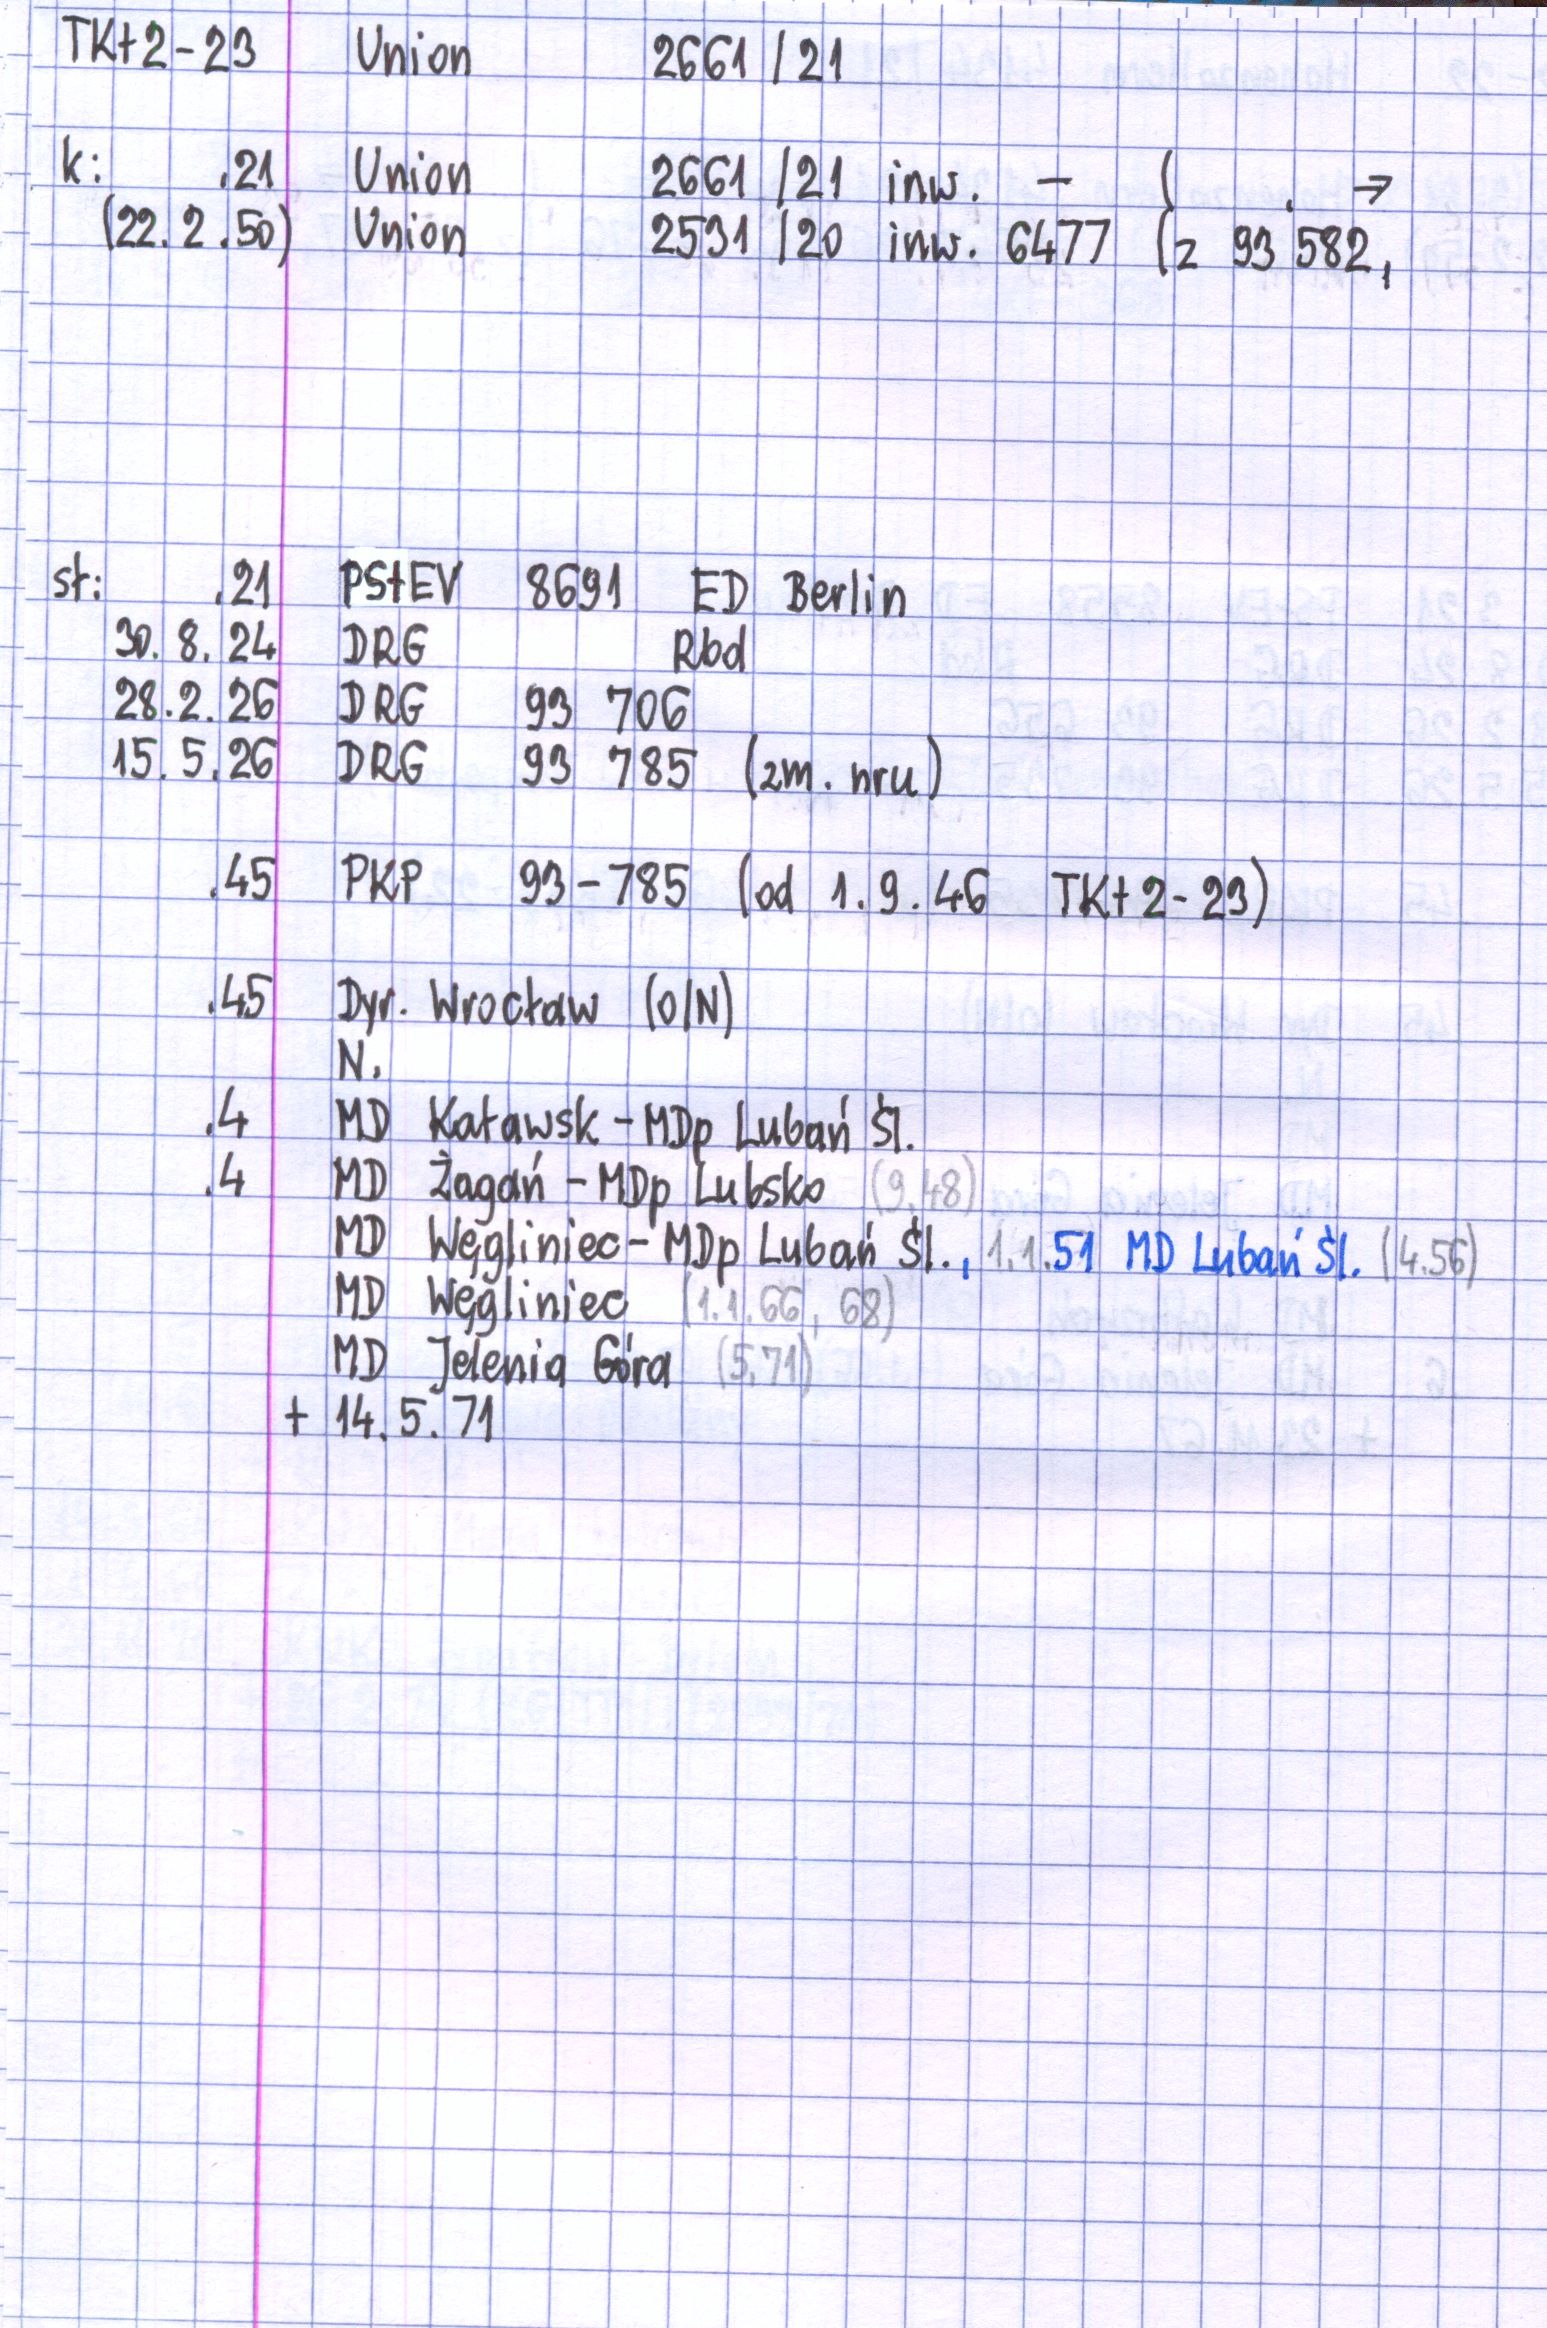 TKt2-23 Union 2661/21
k: .21 Union 2661/21 inw. - ( . →
(22.2.50) Union 2531/20 inw. 6477 (z 93 582,
st: .21 PStEV 8691 ED Berlin
30.8.24 DRG Rbd
28.2.26 DRG 93 706
15.5.26 DRG 93 785 (zm. nru)
.45 PKP 93-785 (od 1.9.46 TKt2-23)
.45 Dyr. Wrocław (O/N)
N.
.4 MD Kaławsk - MDp Lubań Śl.
.4 MD Żagań - MDp Lubsko (9.48)
MD Węgliniec - MDp Lubań Śl., 1.1.51 MD Lubań Śl. (4.56)
MD Węgliniec (1.1.66, 68)
MD Jelenia Góra (5.71)
+ 14.5.71